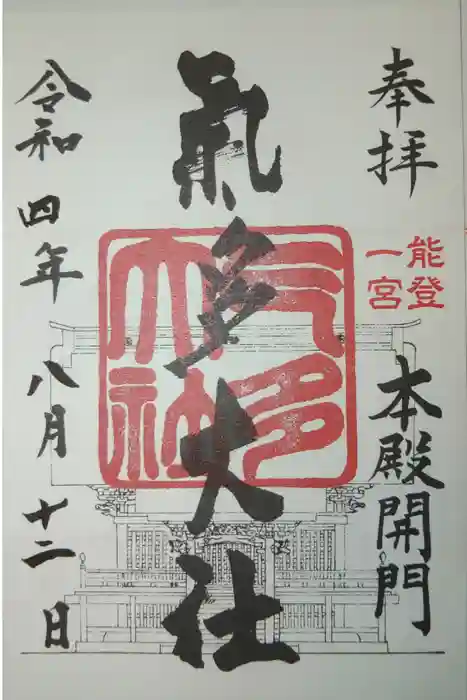 奉拝
能登
一宮
本殿開門
氣多大社
气多
大社
令和四年八月十二日